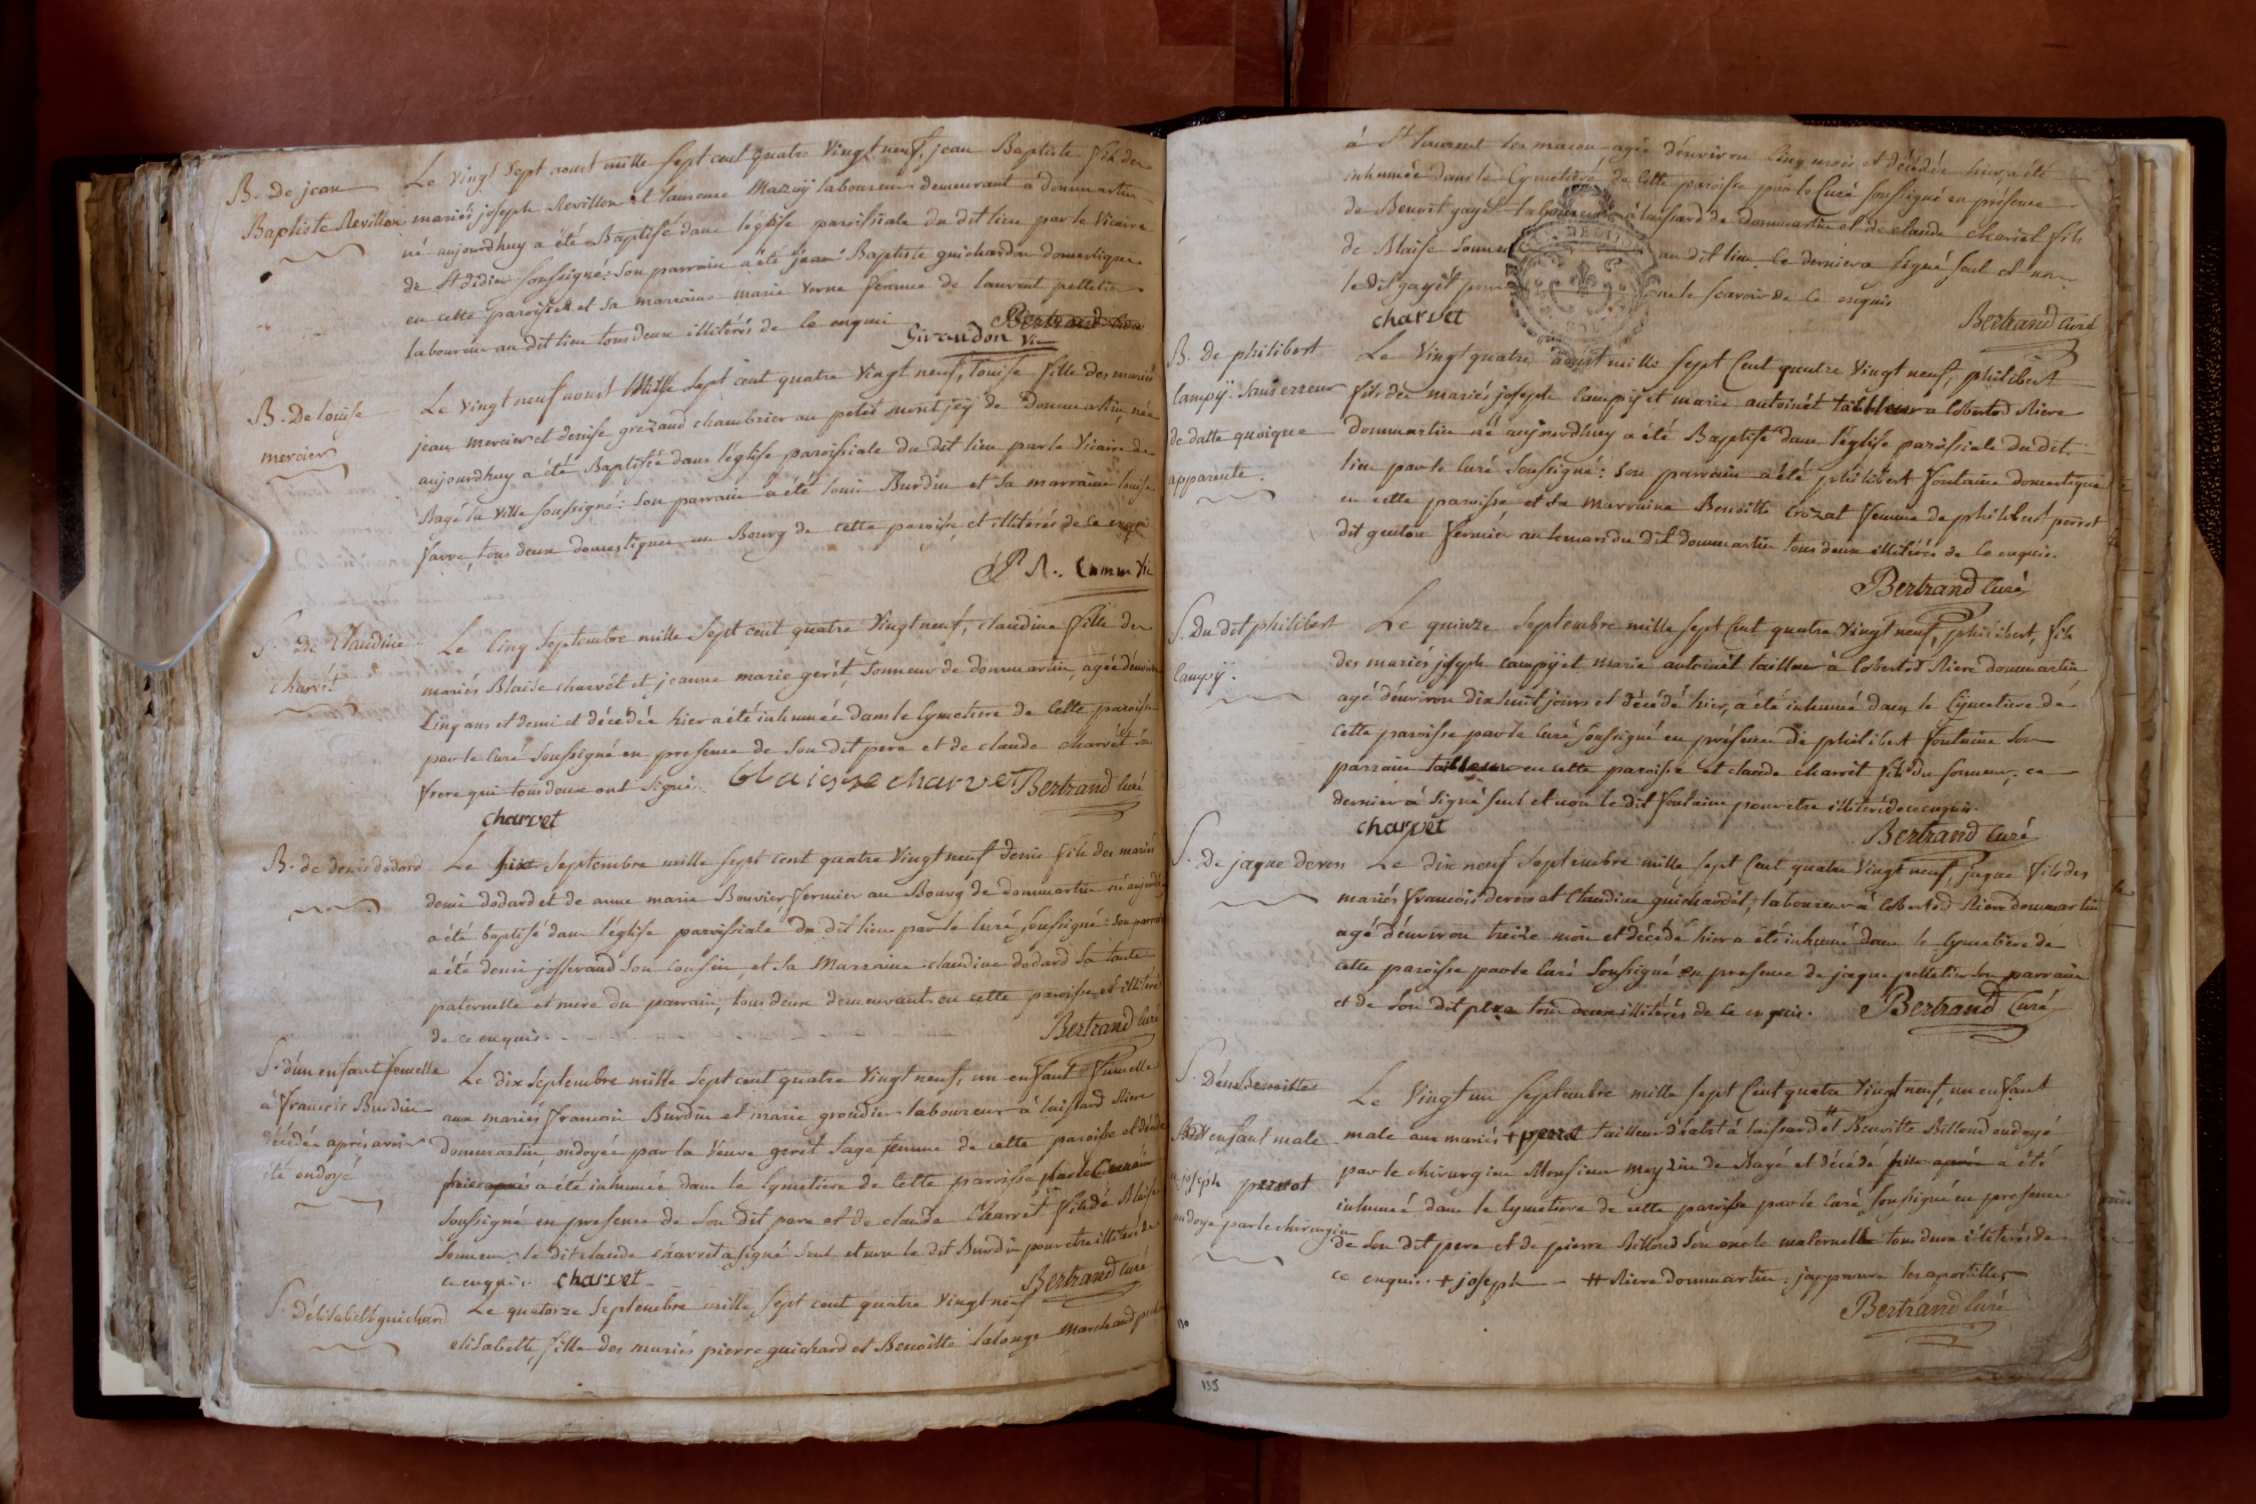 B. De jean
Baptiste Revillon
Le vingt sept aoust mille sept cent quatre vingt neuf, jean Baptiste fils des
mariés joseph Revillon et laurence Mazuÿ laboureur demeurant a donmartin
né aujourdhuy a été Baptisé dans l'église paroissiale du dit lieu par le Vicaire
de St didier soussigné: son parrain a été jean Baptiste guichardon domestique
en cette paroisse et sa marraine marie verne femme de laurent pelletier
laboureur au dit lieu tous deux illitérés de ce enquis
Bertrand Curé
Giraudon Vic
B. De louise
mercier
Le vingt neuf aoust Mille sept cent quatre vingt neuf, louise fille des mariés
jean mercier et denise grezaud chambrier au petit montjeÿ de Donmartin, née
aujourdhuy a été Baptisée dans l'église paroissiale du dit lieu par le Vicaire de
Bagé la ville soussigné: son parrain a été louis Burdin et sa marraine louise
favre, tous deux domestiques au Bourg de cette paroisse et illitérés de ce enquis
Vic
S. de Claudine
charvet
Le Cinq septembre mille sept cent quatre vingt neuf, claudine fille des
mariés Blaise charvét et jeanne marie gerét, sonneur de donmartin, agée d'environ
Cinq ans et demi et décédée hier a été inhumée dans le Cymetiere de Cette paroisse
par le Curé soussigné en presence de son dit pere et de claude charvét son
frere qui tous deux ont signé. blaise charvet Bertrand Curé
charvet
B. de denis dodard
Le six septembre mille sept cent quatre vingt neuf denis fils des mariés
denis dodard et de anne marie Bouvier fermier au Bourg de donmartin né aujourdhuy
a été baptisé dans l'église paroissiale du dit lieu par le Curé soussigné: son parrain
a été denis josserand son cousin et sa Marraine claudine dodard sa tante
paternelle et mere du parrain, tous deux demeurants en cette paroisse et illitérés
de ce enquis. Bertrand Curé
S. d'un enfant femelle
à francois Burdin
décédée après avoir
été ondoyé
Le dix septembre mille sept cent quatre vingt neuf, un enfant femelle
aux mariés francois Burdin et marie grondier laboureur à laissard Riere
donmartin, ondoyée par la Veuve gerét sage femme de cette paroisse et décédée
hier après a été inhumée dans le Cymetiere de cette paroisse par le Curé
soussigné en presence de son dit pere et de claude Charvét fils de Blaise
sonneur: le dit claude charvet a signé seul et non le dit Burdin pour etre illiteré de
ce enquis. charvet Bertrand Curé
S. d'élisabeth guichard
Le quatorze septembre mille sept cent quatre vingt neuf
elisabette fille des mariés pierre guichard et Benoitte lalonge marchand
à St laurent les macon, agée d'environ cinq mois et décédée hier, a été
inhumée dans le Cymetiere de cette paroisse par le Curé soussigné en présence
de Benoit gayét laboureur à laissard de donmartin et de claude charvét fils
de Blaise sonneur au dit lieu. ce dernier a signé seul et non
le dit gayét pour ne le scavoir de ce enquis
charvet
Bertrand Curé
B. de philibert
Campÿ. sans erreur
de datte quoique
apparente.
Le vingt quatre aoust mille sept Cent quatre vingt neuf, philibert
fils des mariés joseph Campÿ et marie antoinét tailleur a Cobertod Riere
donmartin né aujourdhuy a été Baptisé dans l'église paroissiale du dit
lieu par le Curé soussigné: son parrain a été philibert fontaine domestique
en cette paroisse, et sa Marraine Benoitte Crozat femme de philibert perrot
dit genton fermier au temars du dit donmartin tous deux illitérés de ce enquis.
Bertrand Curé
S. Du dit philibert
Campÿ.
Le quinze septembre mille sept Cent quatre vingt neuf, philibert, fils
des mariés joseph campÿ et marie antoinét tailleur à Cobertod Riere donmartin
agé d'environ dix huit jours et décédé hier, a été inhumé dans le Cymetiere de
cette paroisse par le Curé soussigné en présence de philibert fontaine son
parrain tailleur en cette paroisse et claude charvét fils du sonneur; ce
dernier a signé seul et non le dit fontaine pour etre illiteré de ce enquis.
charvet
Bertrand Curé
S. De jaque deren
Le dix neuf septembre mille sept Cent quatre vingt neuf, jaque fils des
mariés francois deren et Claudine guichardét, laboureur à Cobertod Riere donmartin
agé d'environ treize mois et décédé hier a été inhumé dans le Cymetiere de
cette paroisse par le Curé soussigné en presence de jaque pelletier son parrain
et de son dit pere tous deux illitérés de ce enquis. Bertrand Curé
S. D'une Benoitte
enfant male
a joseph perrot
ondoyé par le chirurgien
Le vingt un septembre mille sept Cent quatre vingt neuf, un enfant
male aux mariés + perrot tailleur d'abit à laissard # et Benoitte Billoud ondoyé
par le chirurgien Monsieur meyzin de Bagé et décédé hier après a été
inhumé dans le Cymetiere de cette paroisse par le Curé soussigné en presence
de son dit pere et de pierre Billoud son oncle maternelle tous deux illiterés de
ce enquis. + joseph # Riere donmartin: japprouve les apostilles
Bertrand Curé
135